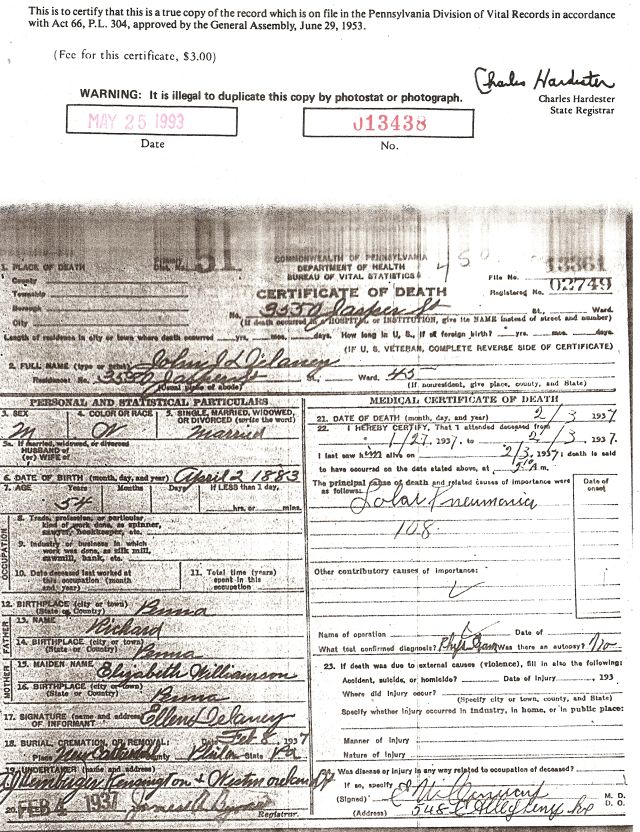 This is to certify that this is a true copy of the record which is on file in the Pennsylvania Division of Vital Records in accordance
with Act 66, P.L. 304, approved by the General Assembly, June 29, 1953.
(Fee for this certificate, $3.00)
WARNING: It is illegal to duplicate this copy by photostat or photograph.
Charles Hardester
Charles Hardester
State Registrar
MAY 25 1993
J13438
Date
No.
COMMONWEALTH OF PENNSYLVANIA
DEPARTMENT OF HEALTH
BUREAU OF VITAL STATISTICS
CERTIFICATE OF DEATH
File No.
Registered No. 02749
1. PLACE OF DEATH
County
Township
Borough
City
No. 3550 Jasper St St., Ward.
(If death occurred in a HOSPITAL or INSTITUTION, give its NAME instead of street and number)
Length of residence in city or town where death occurred yrs. mos. days. How long in U. S., if of foreign birth? yrs. mos. days.
(IF U. S. VETERAN, COMPLETE REVERSE SIDE OF CERTIFICATE)
2. FULL NAME (type or print) John J Delaney
Residence: No. 3550 Jasper St St., Ward. 45
(Usual place of abode)
(If nonresident, give place, county, and State)
PERSONAL AND STATISTICAL PARTICULARS
3. SEX M
4. COLOR OR RACE W
5. SINGLE, MARRIED, WIDOWED, OR DIVORCED (write the word) Married
5a. If married, widowed, or divorced
HUSBAND of
(or) WIFE of
6. DATE OF BIRTH (month, day, and year) April 2 1883
7. AGE Years Months Days If LESS than 1 day,
54 hrs. or mins.
OCCUPATION
8. Trade, profession, or particular
kind of work done, as spinner,
sawyer, bookkeeper, etc.
9. Industry or business in which
work was done, as silk mill,
sawmill, bank, etc.
10. Date deceased last worked at
this occupation (month
and year)
11. Total time (years)
spent in this
occupation
12. BIRTHPLACE (city or town)
(State or Country) Penna
FATHER
13. NAME Richard
14. BIRTHPLACE (city or town)
(State or Country) Penna
MOTHER
15. MAIDEN NAME Elizabeth Williamson
16. BIRTHPLACE (city or town)
(State or Country) Penna
17. SIGNATURE (name and address)
OF INFORMANT Ellen Delaney
18. BURIAL, CREMATION, OR REMOVAL: Date Feb 8 1937
Place New Cathedral Phila State Pa
19. UNDERTAKER (name and address)
Kensington
20. FEB 1937
Registrar.
MEDICAL CERTIFICATE OF DEATH
21. DATE OF DEATH (month, day, and year) 2/3 1937
22. I HEREBY CERTIFY, That I attended deceased from
1/27, 1937, to 2/3, 1937.
I last saw him alive on 2/3, 1937; death is said
to have occurred on the date stated above, at m.
The principal cause of death and related causes of importance were
as follows: Date of
onset
Lobar Pneumonia
108
Other contributory causes of importance:
Name of operation Date of
What test confirmed diagnosis? Phys Exam Was there an autopsy? No
23. If death was due to external causes (violence), fill in also the following:
Accident, suicide, or homicide? Date of injury , 193
Where did injury occur?
(Specify city or town, county, and State)
Specify whether injury occurred in industry, in home, or in public place:
Manner of injury
Nature of injury
Was disease or injury in any way related to occupation of deceased?
If so, specify
(Signed) M. D.
D. O.
(Address) 548 E Allegheny Ave